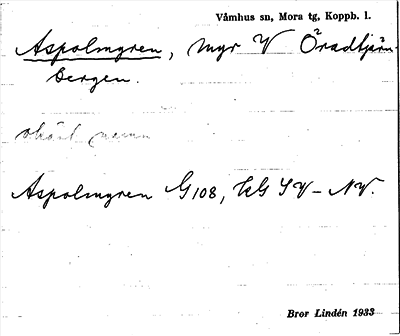 Våmhus sn, Mora tg, Koppb. l.
Aspolmyren, myr V Öradtjärn-
bergen.
okänt namn
Aspolmyren G108, bG SV-NV.
Bror Lindén 1933